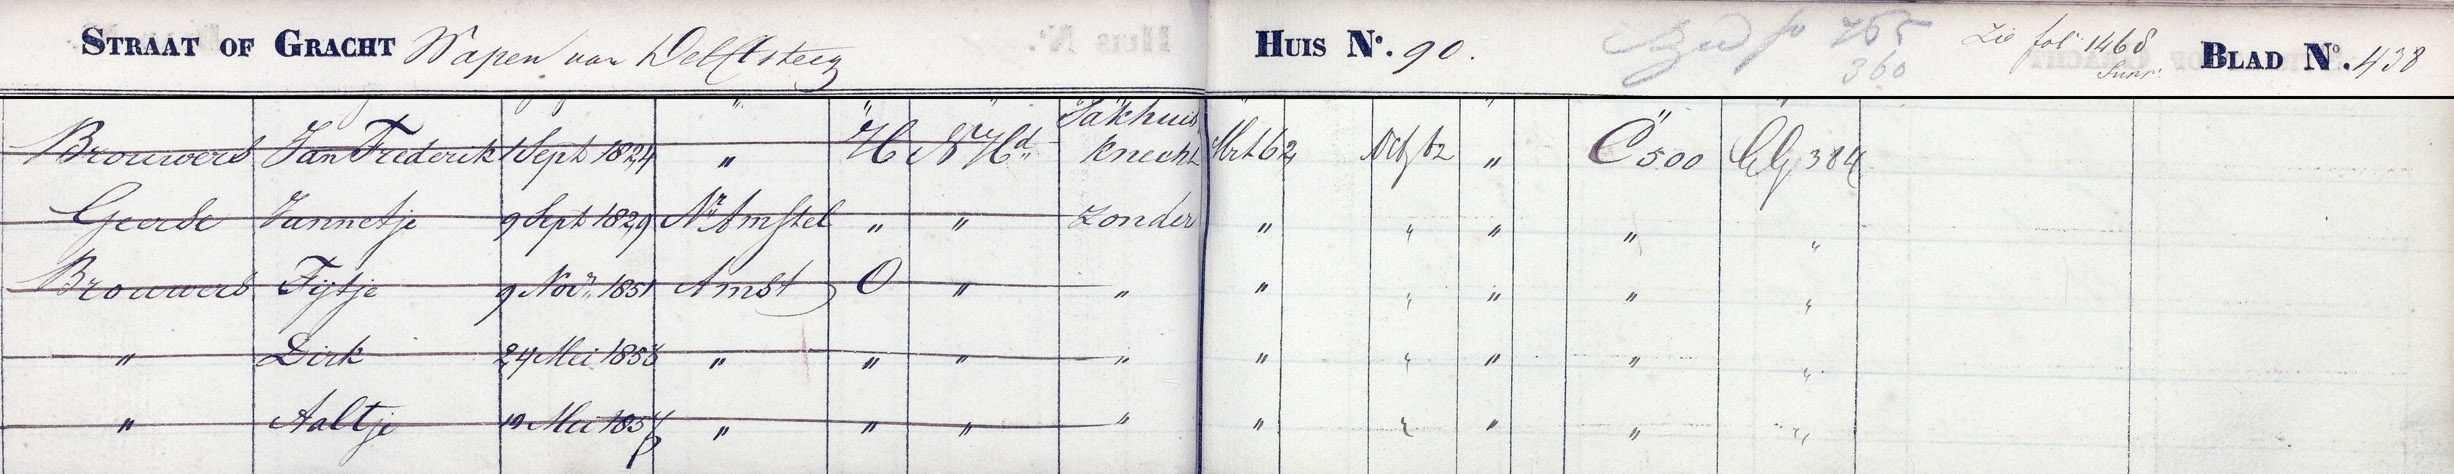 STRAAT OF GRACHT Wapen van Delftsteeg HUIS No. 90. fo 765 360 Zie fol 1468 BLAD No. 438
Pakhuis
Brouwers Jan Frederik 1 Sept 1824 " H N Hd knecht Mrt 62 Oct 62 " C 500 384
Geerde Jannetje 9 Sept 1829 Nr Amstel " " Zonder " " " " "
Brouwers Fijtje 9 Novr 1851 Amst O " " " " " " "
" Dirk 24 Mei 1853 " " " " " " " " "
" Aaltje 19 Mei 1857 " " " " " " " " "